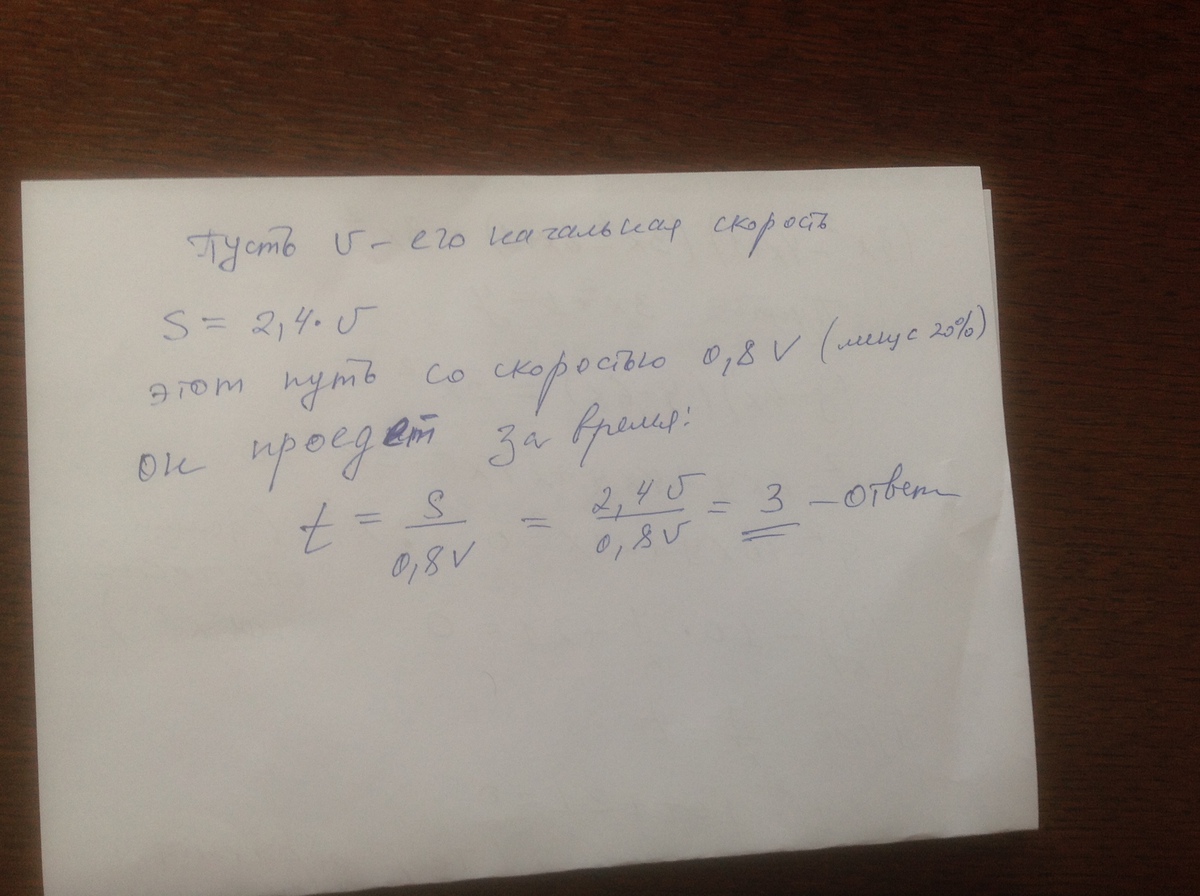 Пусть v - его начальная скорость
S = 2,4 · v
этот путь со скоростью 0,8 v (минус 20%)
он проедет за время:
t = S / 0,8 v = 2,4 v / 0,8 v = 3 - ответ